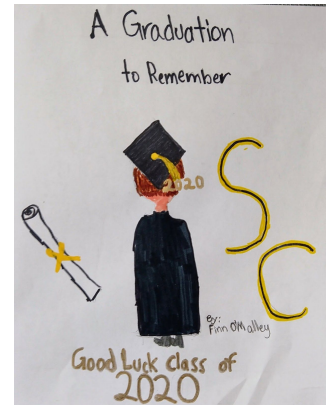 A Graduation
to Remember
2020
S
C
By:
Finn O'Malley
Good Luck class of
2020